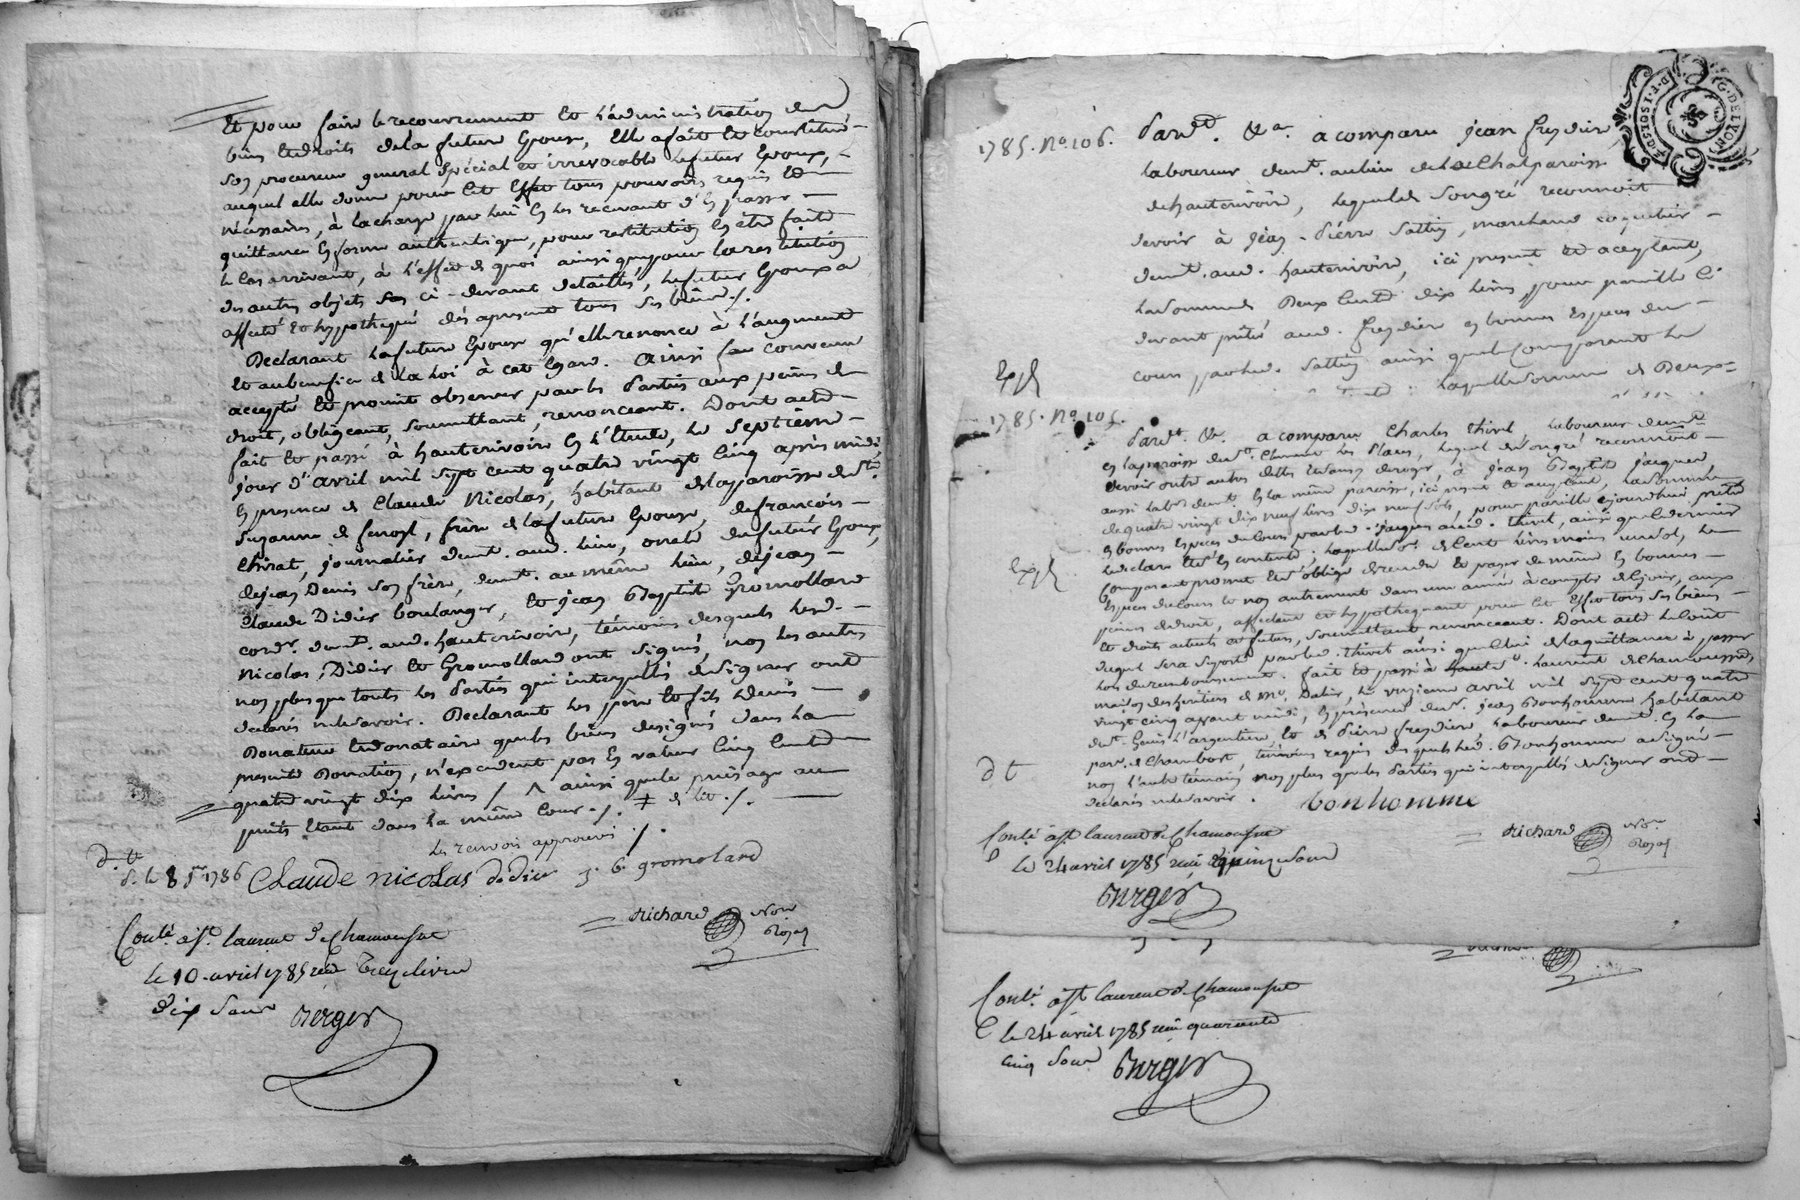 Et pour faire le recouvrement et l'administration des
biens et droits de la future Epouse, Elle a fait et constitué
son procureur general special et irrevocable le futur Epoux,
auquel elle donne pour cet effet tous pouvoirs requis et
nécessaires, à la charge par lui en les recevant d'en passer
quittance en forme authentique, pour restitution en être faite
le cas arrivant, à l'effet de quoi ainsi que pour la restitution
des autres objets ci-devant detaillés, le futur Epoux a
affecté et hypothequé dès apresent tous ses biens ./.
Declarant la future Epouse qu'elle renonce à l'augment
et au benefice de la Loi à cet Egard. Ainsi convenu
accepté et promit observer par les Parties aux peines de
droit, obligeant, soumettant, renonceant. Dont acte
fait et passé à hauterivoire en l'Etude, le septieme
jour d'avril mil sept cent quatre vingt cinq après midi,
En presence de Claude Nicolas, habitant de la paroisse de
Suzanne de , frère de la future Epouse, de françois
Thirat, journalier demt. aud. lieu, oncle du futur Epoux,
de jean Denis son frère, demt. au même lieu, de jean
Claude Didier boulanger, et jean Baptiste Gromolland
cordr. demt. aud. hauterivoire, témoins desquels lesd.
Nicolas, Didier et Gromolland ont signés, non les autres
non plus que touts les Parties qui interpellés de signer ont
declarés ne le savoir. Declarant les père et fils Denis
Donateur et donataire que les biens designés dans la
presente Donation, n'excedent pas en valeur cinq cents
quatre vingt dix livres /. ainsi que le puisage au
puits etant dans la même Cour ./.
les renvois approuvés ./.
d. t.
Claude nicolas didier j. b. gromolard
D. le 8 1786
Richard Nore Royal
Conlé. à St. laurent de Chamousset
le 10 avril 1785 reçu treize livres
dix sous Berger
1785. No. 106. Pardt. &a. a comparu jean freydiere
laboureur demt. au lieu de paroisse
de hauterivoire, lequel de son gré reconnoit
devoir à jean-Pierre Sattin, marchand coquetier
demt. aud. hauterivoire, ici present et acceptant,
la somme de Deux Cents dix livres pour pareille ci
devant prêté aud. freydiere en bonnes Especes de
cours par led. Sattin ainsi que le Comparant le
laquelle somme de Deux
Expé
1785. No. 105.
Pardt. &a. a comparu Charles Thivel laboureur demt.
en la paroisse de St. Clement les Places, lequel de son gré reconnoit
devoir outre autres dettes et sans y deroger, à jean Baptiste jacquet
aussi labr. demt. en la même paroisse, ici present et acceptant, la somme
de quatre vingt dix neuf livres dix neuf sols, pour pareille ajourdhui prêté
en bonnes Especes de cours par led. jacquet aud. Thivel, ainsi que le dernier
le declare et s'en contente; laquelle de Cent livres moins un sol, le
Comparant promet et s'oblige de rendre et payer de même en bonnes
Especes de cours et non autrement dans un année à compter de ce jour, aux
peines de droit, affectant et hypothequant pour cet Effet tous ses biens
et droits actuels et futurs, soumettant renonceant. Dont acte le Cout
duquel sera suporté par led. Thivel ainsi que celui de la quittance à passer
lors du remboursement. fait et passé à St. laurent de Chamousset,
maison des heritiers de Me. , le onzieme avril mil sept cent quatre
vingt cinq avant midi, En presence de Sr. jean Bonhomme habitant
de St. Genis l'argentiere et de Pierre freydiere laboureur demt. en la
par. de Chambost, témoins requis desquels led. Bonhomme a signé
non l'autre témoin non plus que les Parties qui interpellés de signer ont
declarés ne le savoir. bonhomme
Expé
d t
Richard Nore Royal
Conlé. à St. laurent de Chamousset
le 24 avril 1785 reçu quinze sous
Berger
Conlé. à St. laurent de Chamousset
le 24 avril 1785 reçu quarante
cinq sous Berger
G. DE LYON